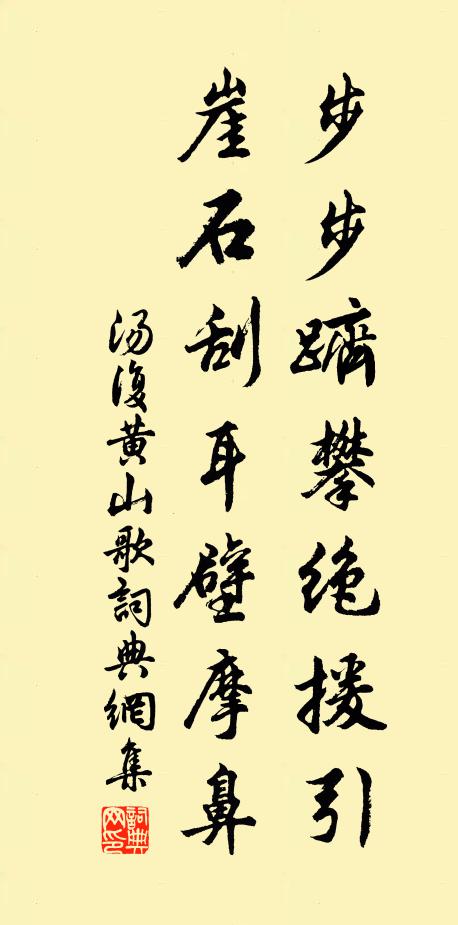 步步躋攀絶援引
崖石刮耳壁摩鼻
汤復黄山歌詞典網集
詞典网印